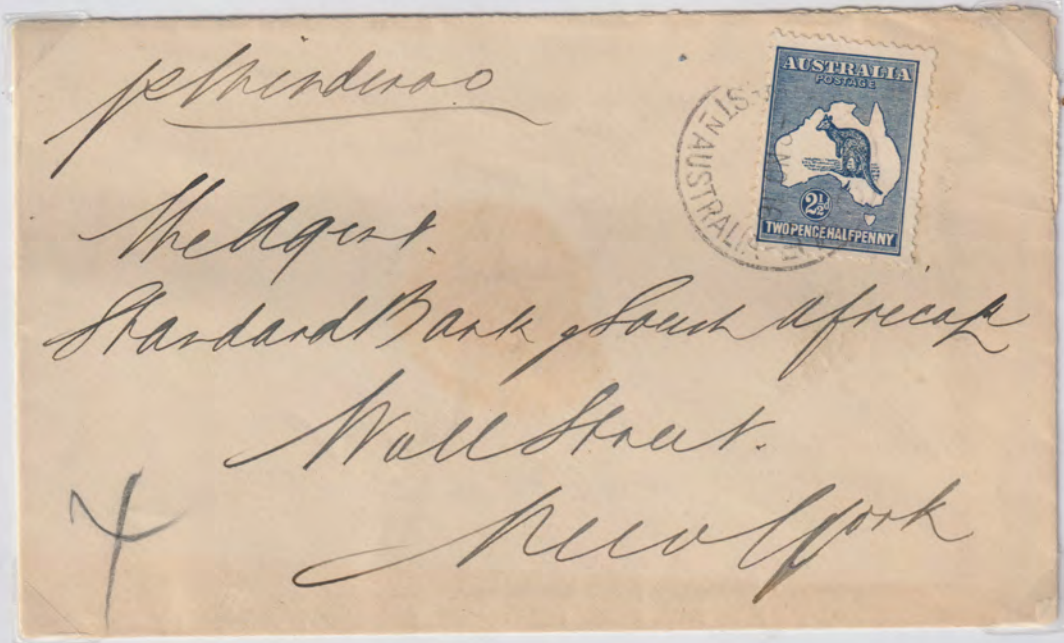 p Minderoo
AUSTRALIA
POSTAGE
2½d
TWO PENCE HALFPENNY
ST N AUSTRALIA
The Agent.
Standard Bank of South Africa
Wall Street.
New York